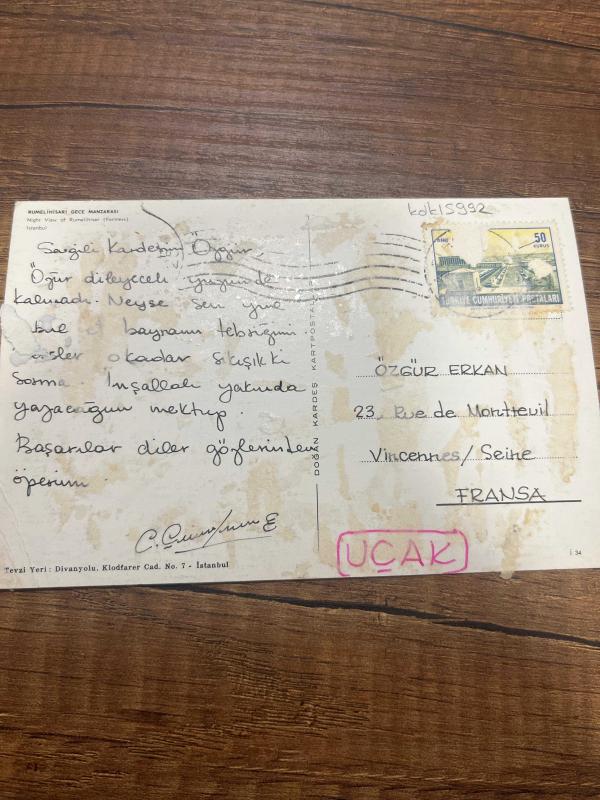 RUMELİHİSARI GECE MANZARASI
Night View of Rumelihisar (Fortress)
İstanbul
kdk15992
Sevgili Kardeşim Özgür,
Özür dileyecek yüzüm de
kalmadı. Neyse sen yine
bayramı tebriğimi.
İşler okadar sıkışık ki
Sorma. İnşallah yakında
yazacağım mektup.
Başarılar diler gözlerinden
öperim.
Tevzi Yeri : Divanyolu, Klodfarer Cad. No. 7 - İstanbul
DOĞAN KARDEŞ KARTPOSTALI
50
KURUŞ
TÜRKİYE CUMHURİYETİ POSTALARI
ÖZGÜR ERKAN
23, Rue de Montreuil
Vincennes/Seine
FRANSA
UÇAK
İ 34